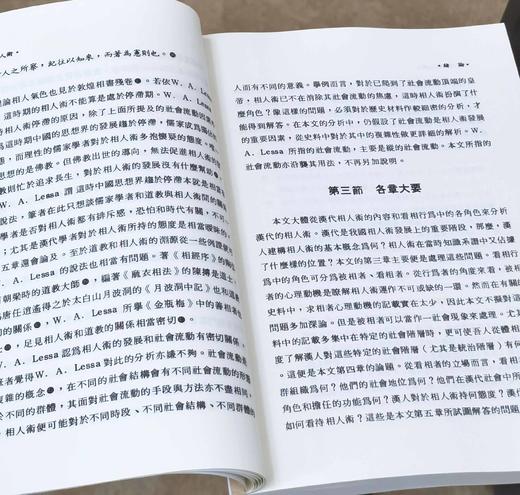 人術・
人之所察，紀往以知來，而著爲憲則也。
論相人氣色也見於敦煌相書殘卷。若依W. A. Les-
時期的相人術不能算是處於停滯期。W. A. Lessa
術停滯的原因，除了上面所提及的社會流動因素
爲這時期中國的思想界的發展趨於停滯，儒家成爲獨
態，而理性的儒家學者對於相人術多抱懷疑的態度，唯
思想的是佛教。但佛教出世的導向，無使促進相人術的
教則忙於追求長生，對於相人術的發展沒有什麼幫助
W. A. Lessa 謂這時中國思想界趨於停滯本就是相當
說法，筆者在此只想談儒家學者和道教與相人術間的關
學者是否對相人術都有排斥感，恐怕和時代有關，不
；尤其是漢代學者對於相人術所持的態度是相當曖昧的，
五章還會論及。至於道教和相人術的淵源從一些例證便
W. A. Lessa 的說法也有相當的問題。著《相經序》的陶
南朝梁時的道教大師，編著《龍衣相法》的陳摶是道士，
唐任逍遙得之於太白山月波洞的《月波洞中記》也和道教
切的關係，W. A. Lessa 所舉《金瓶梅》中的吳神仙
，足見相人術和道教的關係相當密切。
A. Lessa 認爲相人術的發展和社會流動有密切關係，
者覺得W. A. Lessa 對此的分析亦嫌不夠。社會流動是
複雜的概念，在不同的社會結構會有不同社會流動的形態
於不同的群體，其面對社會流動的手段與方法亦不盡相同，
相人術便可能對於不同時段、不同社會結構、不同的
・緒 論・
人而有不同的意義。舉例而言，對於已爬到了社會流動頂端的皇
帝，相人術已不在消除其社會流動的焦慮，這時相人術扮演了什
麼角色？像這樣的問題，必須對於歷史材料作較細密的分析，才
能得到解答。在本文的分析中，仍假設了社會流動是相人術發展
的重要因素，從史料中對於其中的複雜性做更詳細的解析。W.
A. Lessa 所指的社會流動，主要是縱的社會流動。本文所指的
社會流動亦沿襲其用法，不再另加說明。
第三節　各章大要
本文大體從漢代相人術的內容和看相行爲中的各角色來分析
漢代的相人術。漢代是我國相人術發展上的重要階段，那麼，漢
人建構相人術的基本概念爲何？相人術在當時知識系譜中又佔據
了什麼樣的位置？本文的第三章主要便是處理這些問題。看相行
爲中的角色可分爲被相者、看相者。從行爲者的角度來看，被相
者的心理動機是瞭解相人術運作不可或缺的一環。然而在有關的
史料中，求相者心理動機的記載實在太少，因此本文不擬對這個
問題多加探論。但是被相者可以當作一社會現象來處理。尤其史
料中的記載多集中在特定的社會階層時，更可使吾人從總相的角
度了解漢人對這些特定的社會階層（尤其是統治階層）有何印
象？這便是本文第四章的論題。從看相者的立場而言，看相者這
群組織爲何？他們的社會地位爲何？他們在漢代社會中所扮演的
角色和擔任的功能爲何？漢人對於相人術持何態度？漢代學者又
如何看待相人術？這些是本文第五章所試圖解答的問題